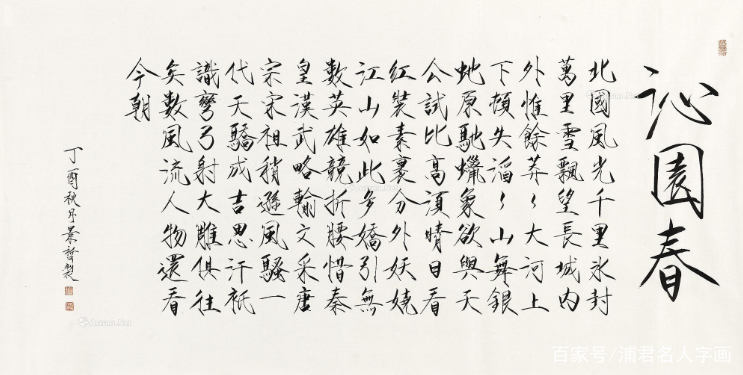 沁園春
北國風光千里冰封
萬里雪飄望長城內
外惟餘莽〻大河上
下頓失滔〻山舞銀
虵原馳蠟象欲與天
公試比高須晴日看
紅裝素裹分外妖嬈
江山如此多嬌引無
數英雄競折腰惜秦
皇漢武略輸文采唐
宗宋祖稍遜風騷一
代天驕成吉思汗祇
識彎弓射大雕俱往
矣數風流人物還看
今朝
丁酉秋月製
百家号/浦君名人字画